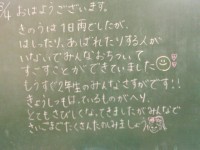 3/4 おはようございます。
きのうは1日雨でしたが、
はしったり、あばれたりする人が
いないでみんなおちついて
すごすことができていました
もうすぐ2年生のみんなさすがです!!
きょうしつは、ているものがへり、
とてもさびしくなってきましたがみんなで
さいごまでたくさんたのしみましょう